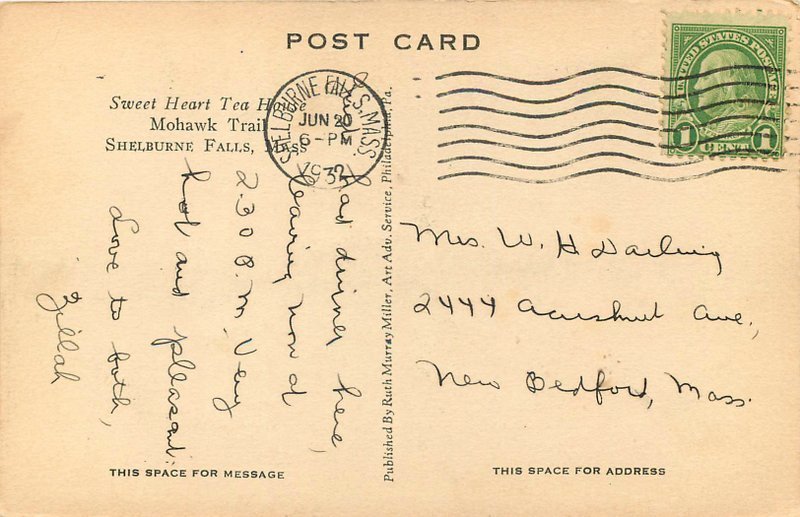 POST CARD
Sweet Heart Tea House
Mohawk Trail
SHELBURNE FALLS, Mass
SHELBURNE FALLS, MASS.
JUN 20
6-PM
1932
UNITED STATES POSTAGE
1 1
CENT
had dinner here,
leaving now at
2 30 P.M. Very
hot and pleasant.
Love to both,
Zillah
Published By Ruth Murray Miller, Art Adv. Service, Philadelphia, Pa.
Mrs. W. H Darling
2444 Acushnet Ave.,
New Bedford, Mass.
THIS SPACE FOR MESSAGE
THIS SPACE FOR ADDRESS